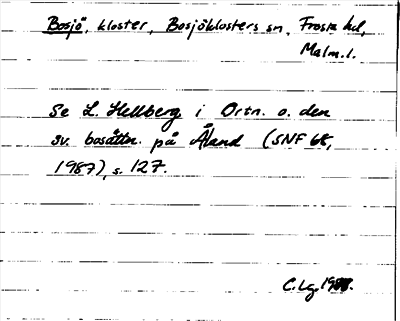 Bosjö, kloster, Bosjöklosters sn, Frosta hd,
Malm. l.
Se L. Hellberg i Ortn. o. den
sv. bosättn. på Åland (SNF 68,
1987), s. 127.
C. Lg.